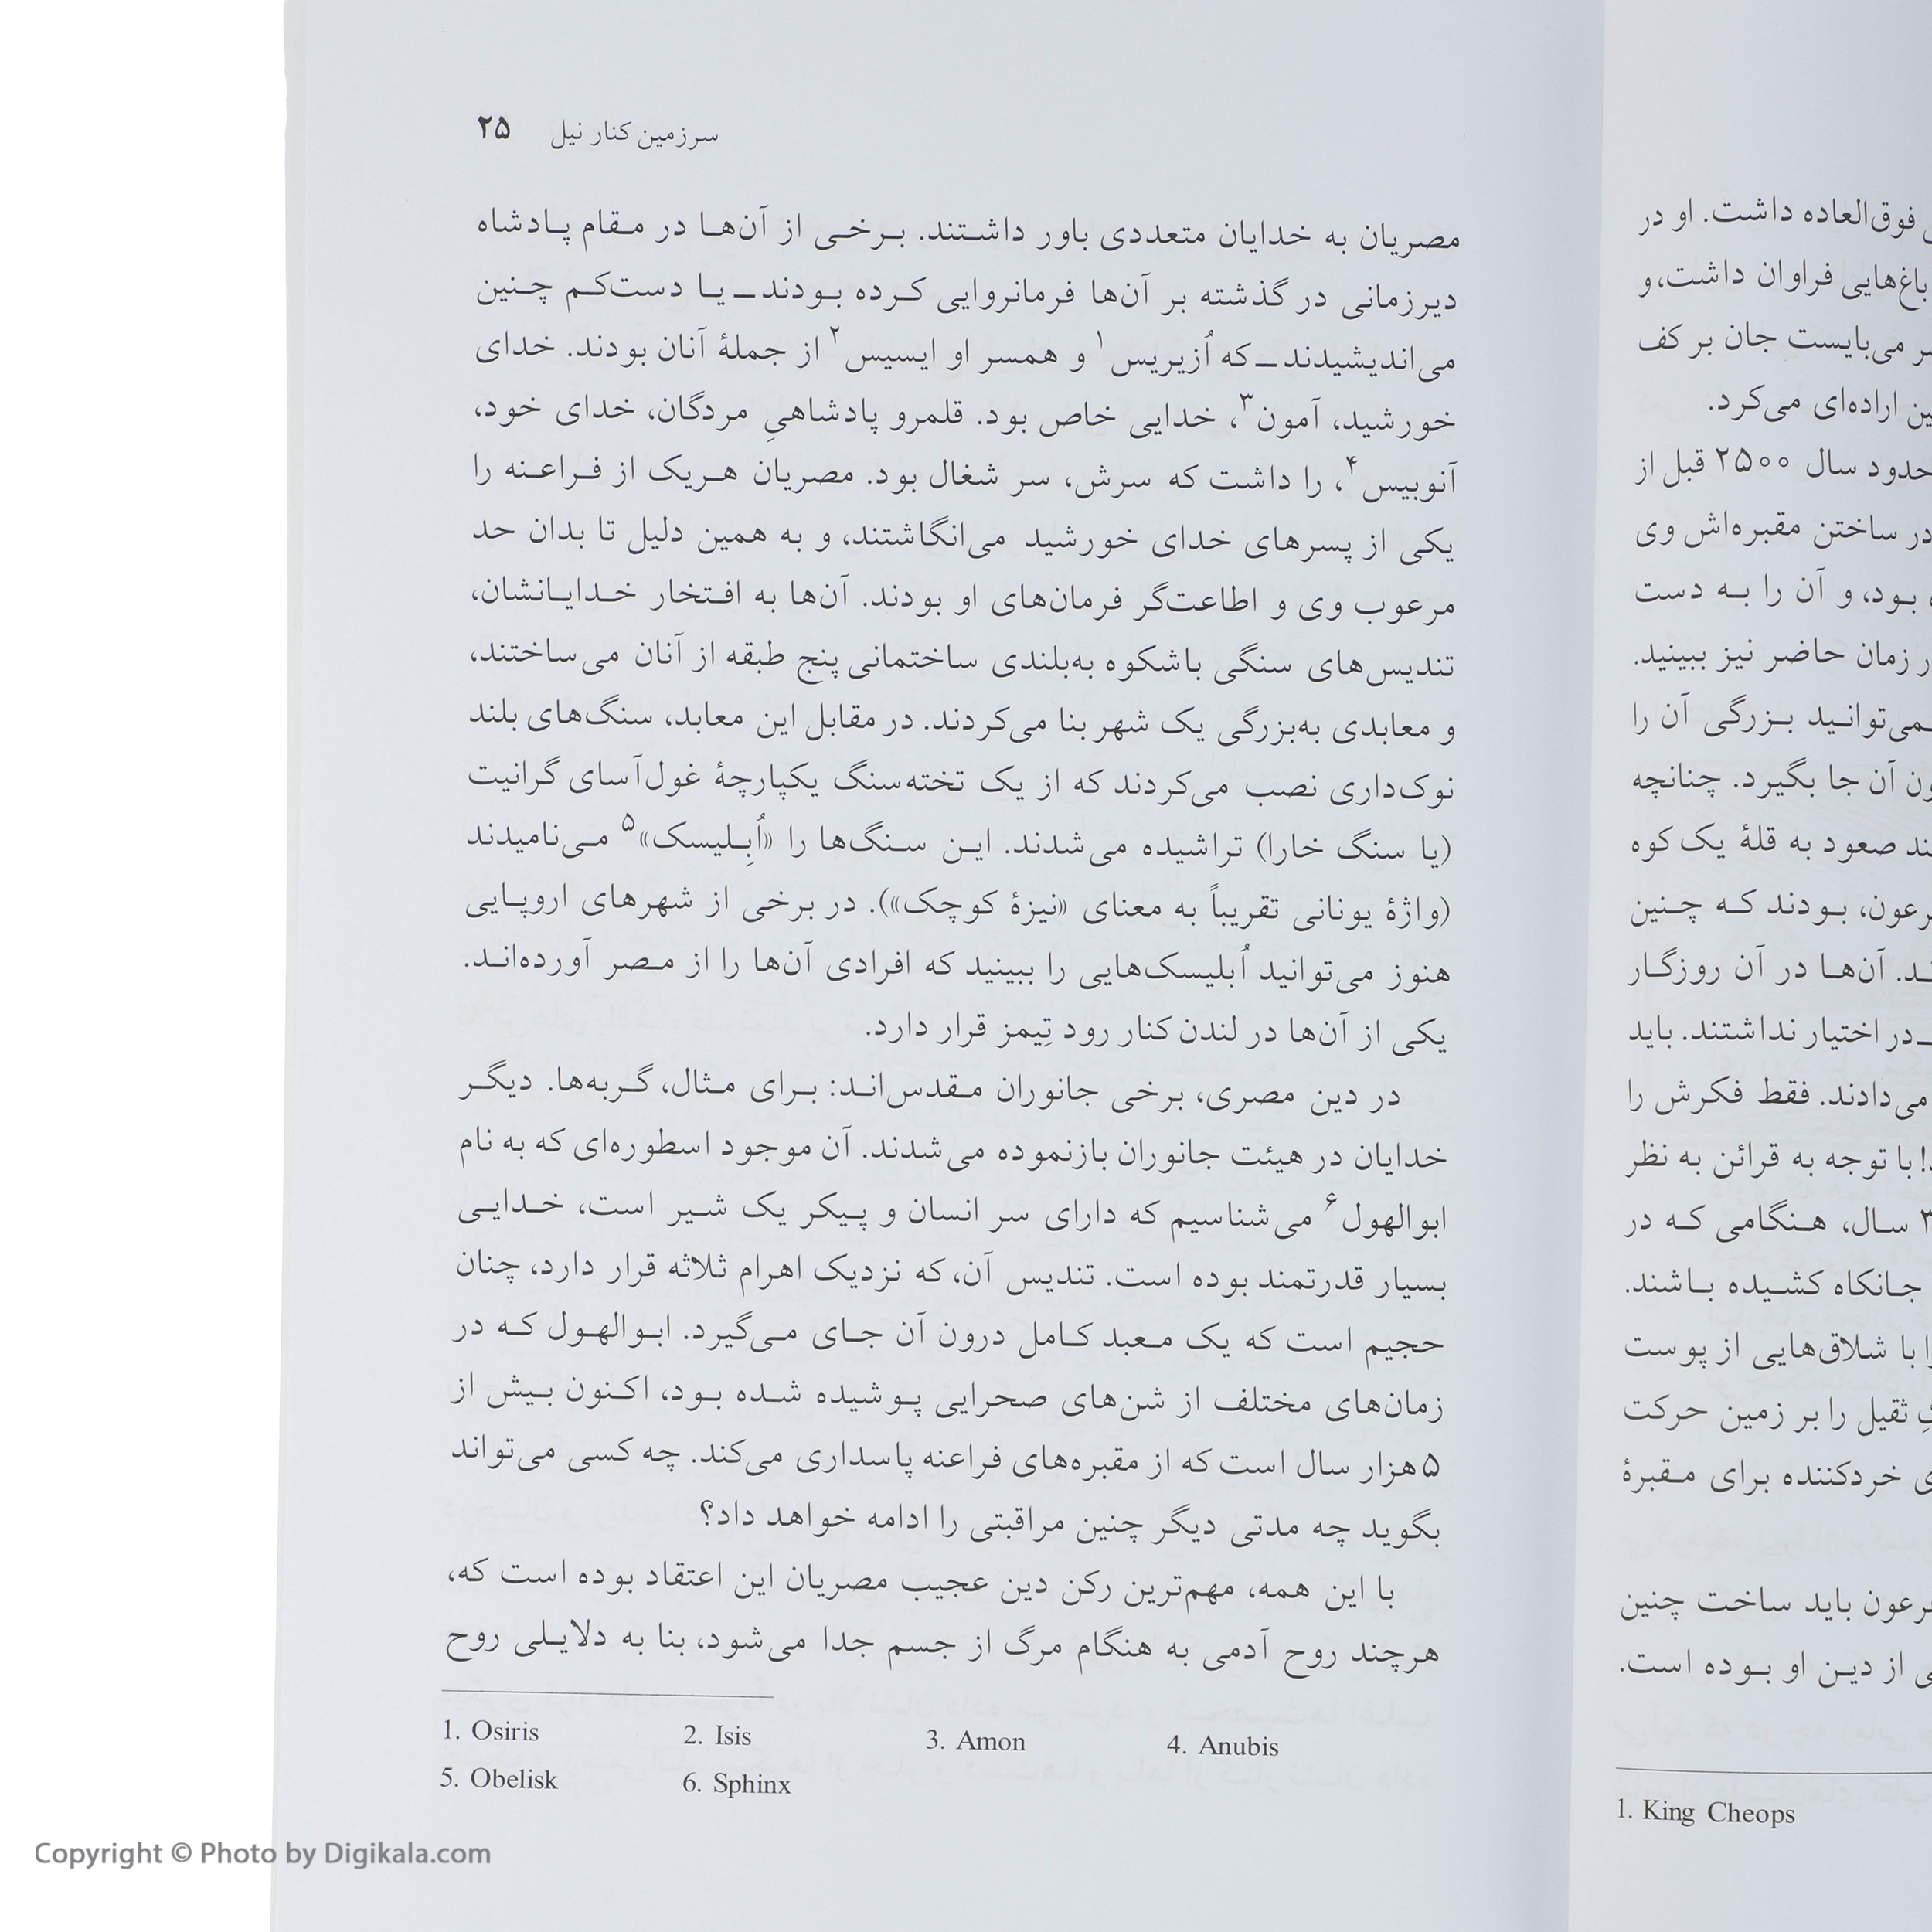 سرزمین کنار نیل ۲۵
مصریان به خدایان متعددی باور داشتند. برخی از آن‌ها در مقام پادشاه
دیرزمانی در گذشته بر آن‌ها فرمانروایی کرده بودند ـ یا دست‌کم چنین
می‌اندیشیدند ـ که اُزیریس۱ و همسر او ایسیس۲ از جملهٔ آنان بودند. خدای
خورشید، آمون۳، خدایی خاص بود. قلمرو پادشاهیِ مردگان، خدای خود،
آنوبیس۴، را داشت که سرش، سر شغال بود. مصریان هریک از فراعنه را
یکی از پسرهای خدای خورشید می‌انگاشتند، و به همین دلیل تا بدان حد
مرعوب وی و اطاعت‌گر فرمان‌های او بودند. آن‌ها به افتخار خدایانشان،
تندیس‌های سنگی باشکوه به‌بلندی ساختمانی پنج طبقه از آنان می‌ساختند،
و معابدی به‌بزرگی یک شهر بنا می‌کردند. در مقابل این معابد، سنگ‌های بلند
نوک‌داری نصب می‌کردند که از یک تخته‌سنگ یکپارچهٔ غول‌آسای گرانیت
(یا سنگ خارا) تراشیده می‌شدند. این سنگ‌ها را «اُبِلیسک»۵ می‌نامیدند
(واژهٔ یونانی تقریباً به معنای «نیزهٔ کوچک»). در برخی از شهرهای اروپایی
هنوز می‌توانید اُبلیسک‌هایی را ببینید که افرادی آن‌ها را از مصر آورده‌اند.
یکی از آن‌ها در لندن کنار رود تِیمز قرار دارد.
در دین مصری، برخی جانوران مقدس‌اند: برای مثال، گربه‌ها. دیگر
خدایان در هیئت جانوران بازنموده می‌شدند. آن موجود اسطوره‌ای که به نام
ابوالهول۶ می‌شناسیم که دارای سر انسان و پیکر یک شیر است، خدایی
بسیار قدرتمند بوده است. تندیس آن، که نزدیک اهرام ثلاثه قرار دارد، چنان
حجیم است که یک معبد کامل درون آن جای می‌گیرد. ابوالهول که در
زمان‌های مختلف از شن‌های صحرایی پوشیده شده بود، اکنون بیش از
۵ هزار سال است که از مقبره‌های فراعنه پاسداری می‌کند. چه کسی می‌تواند
بگوید چه مدتی دیگر چنین مراقبتی را ادامه خواهد داد؟
با این همه، مهم‌ترین رکن دین عجیب مصریان این اعتقاد بوده است که،
هرچند روح آدمی به هنگام مرگ از جسم جدا می‌شود، بنا به دلایلی روح
1. Osiris 2. Isis 3. Amon 4. Anubis
5. Obelisk 6. Sphinx
فوق‌العاده داشت. او در
باغ‌هایی فراوان داشت، و
می‌بایست جان بر کف
اراده‌ای می‌کرد.
حدود سال ۲۵۰۰ قبل از
در ساختن مقبره‌اش وی
بود، و آن را به دست
زمان حاضر نیز ببینید.
بزرگی آن را
آن جا بگیرد. چنانچه
صعود به قلهٔ یک کوه
بودند که چنین
آن‌ها در آن روزگار
ـ در اختیار نداشتند. باید
می‌دادند. فقط فکرش را
با توجه به قرائن به نظر
سال، هنگامی که در
جانکاه کشیده باشند.
با شلاق‌هایی از پوست
ثقیل را بر زمین حرکت
خردکننده برای مقبرهٔ
باید ساخت چنین
از دین او بوده است.
1. King Cheops
Copyright © Photo by Digikala.com